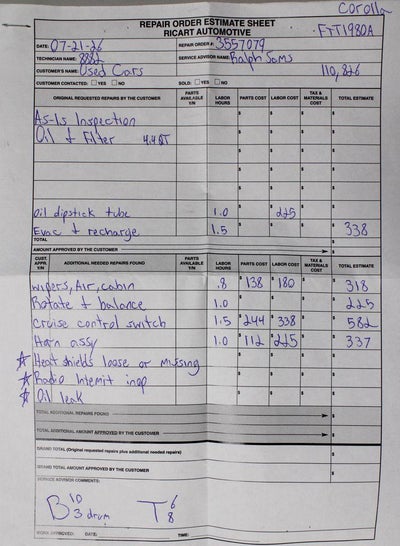 Corolla
REPAIR ORDER ESTIMATE SHEET
RICART AUTOMOTIVE
FYT1980A
DATE: 07-21-26 REPAIR ORDER #: 3557079
TECHNICIAN NAME: 8882 SERVICE ADVISOR NAME: Ralph Sams
CUSTOMER'S NAME: Used Cars 110,826
CUSTOMER CONTACTED: YES NO SOLD: YES NO
ORIGINAL REQUESTED REPAIRS BY THE CUSTOMER PARTS AVAILABLE Y/N LABOR HOURS PARTS COST LABOR COST TAX & MATERIALS COST TOTAL ESTIMATE
As-Is Inspection $ $ $ $
Oil & Filter 4.4 QT $ $ $ $
oil dipstick tube 1.0 $ $ 225 $ $
Evac & recharge 1.5 $ $ $ $ 338
TOTAL $
AMOUNT APPROVED BY THE CUSTOMER $
CUST. APPR. Y/N ADDITIONAL NEEDED REPAIRS FOUND PARTS AVAILABLE Y/N LABOR HOURS PARTS COST LABOR COST TAX & MATERIALS COST TOTAL ESTIMATE
wipers, Air, cabin .8 $ 138 $ 180 $ $ 318
Rotate & balance 1.0 $ $ $ $ 225
Cruise control switch 1.5 $ 244 $ 338 $ $ 582
Horn assy 1.0 $ 112 $ 225 $ $ 337
☆ Heat shields loose or missing $ $ $ $
☆ Radio Intermit inop $ $ $ $
☆ Oil leak $ $ $ $
TOTAL ADDITIONAL REPAIRS FOUND $
TOTAL ADDITIONAL AMOUNT APPROVED BY THE CUSTOMER $
GRAND TOTAL (Original requested repairs plus additional needed repairs) $
GRAND TOTAL AMOUNT APPROVED BY THE CUSTOMER $
SERVICE ADVISOR COMMENTS:
B 10 T 6
3 drum 8
WORK APPROVED: DATE: TIME: